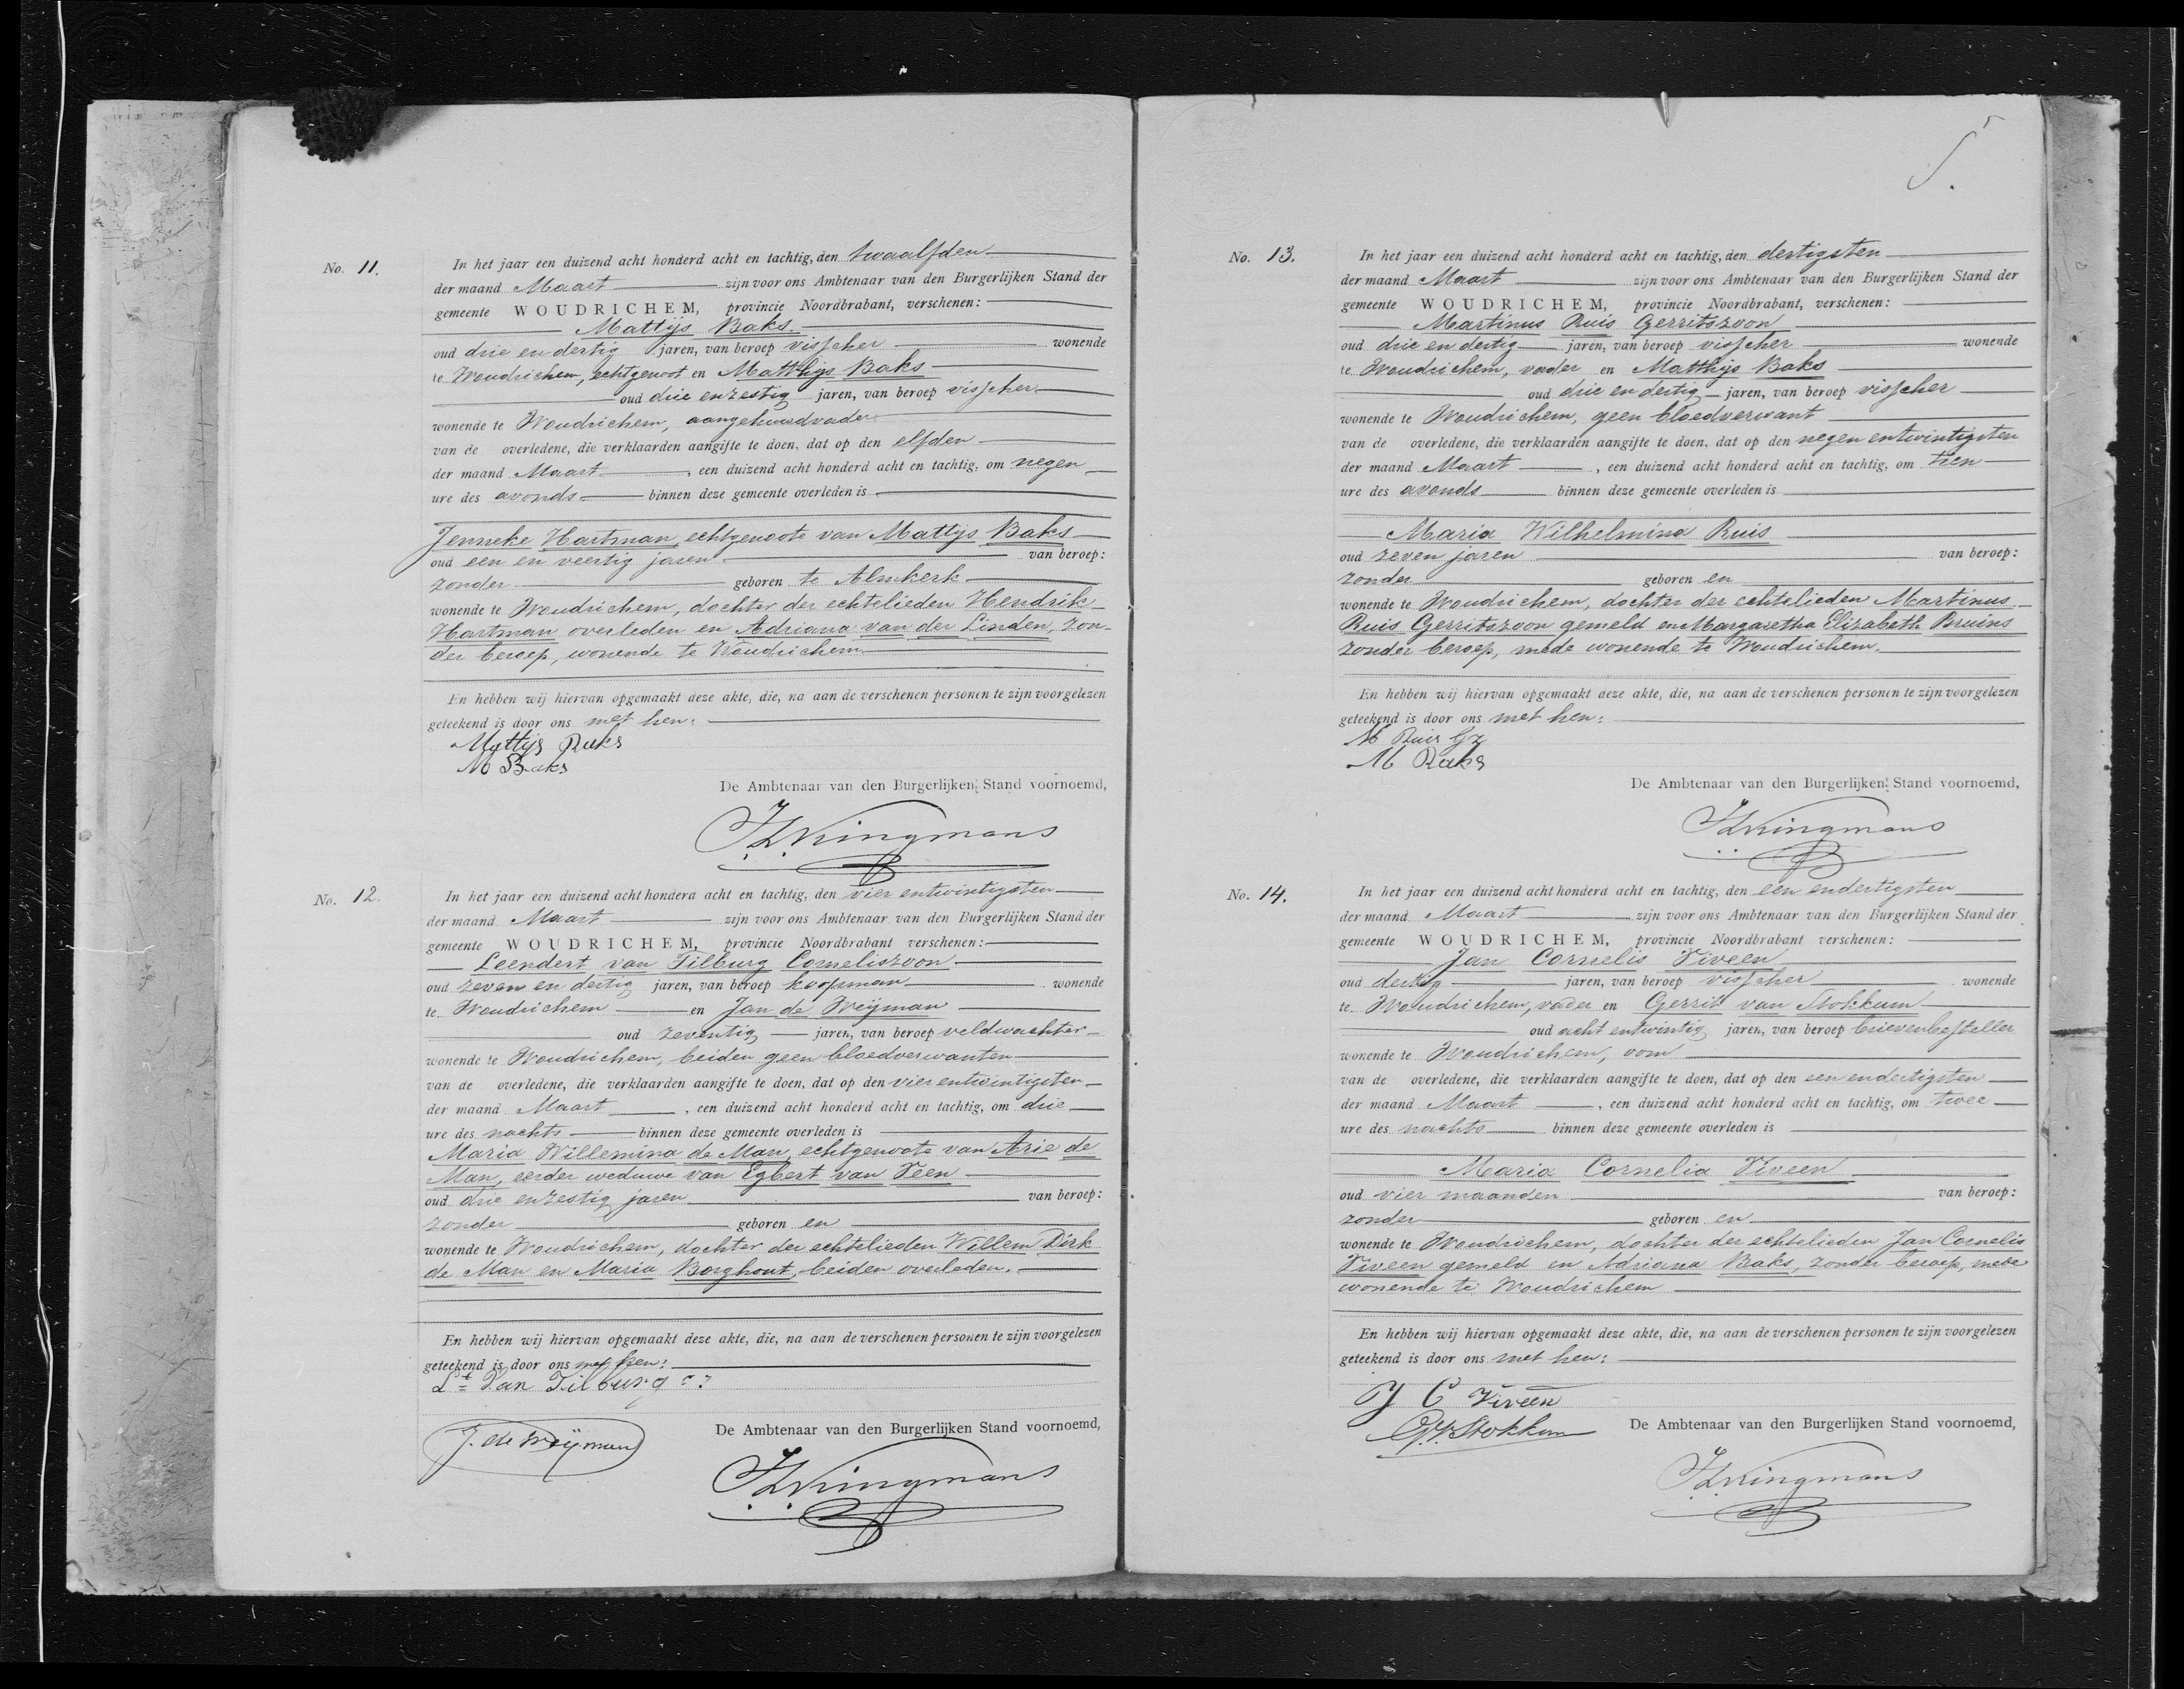 No. 11.
In het jaar een duizend acht honderd acht en tachtig, den twaalfden
der maand Maart zijn voor ons Ambtenaar van den Burgerlijken Stand der
gemeente WOUDRICHEM, provincie Noordbrabant, verschenen:
Mattijs Baks.
oud drie en dertig jaren, van beroep visscher wonende
te Woudrichem, echtgenoot en Matthijs Baks
oud drie en zestig jaren, van beroep visscher
wonende te Woudrichem, aangehuwdvader
van de overledene, die verklaarden aangifte te doen, dat op den elfden
der maand Maart, een duizend acht honderd acht en tachtig, om negen
ure des avonds binnen deze gemeente overleden is
Jenneke Hartman echtgenoote van Mattijs Baks
oud een en veertig jaren van beroep:
zonder geboren te Almkerk
wonende te Woudrichem, dochter der echtelieden Hendrik
Hartman overleden en Adriana van der Linden, zon-
der beroep, wonende te Woudrichem
En hebben wij hiervan opgemaakt deze akte, die, na aan de verschenen personen te zijn voorgelezen
geteekend is door ons met hen:
Mattijs Baks
M Baks
De Ambtenaar van den Burgerlijken Stand voornoemd,
Kingmans
No. 12.
In het jaar een duizend acht honderd acht en tachtig, den vier entwintigsten
der maand Maart zijn voor ons Ambtenaar van den Burgerlijken Stand der
gemeente WOUDRICHEM, provincie Noordbrabant verschenen:
Leendert van Tilburg Corneliszoon
oud zeven en dertig jaren, van beroep koopman wonende
te Woudrichem en Jan de Weijman
oud zeventig jaren, van beroep veldwachter
wonende te Woudrichem, beiden geen bloedverwanten
van de overledene, die verklaarden aangifte te doen, dat op den vier entwintigsten
der maand Maart, een duizend acht honderd acht en tachtig, om drie
ure des nachts binnen deze gemeente overleden is
Maria Willemina de Man, echtgenoote van Arie de
Man, eerder weduwe van Egbert van Veen
oud drie en zestig jaren van beroep:
zonder geboren en
wonende te Woudrichem, dochter der echtelieden Willem Dirk
de Man en Maria Borghout, beiden overleden.
En hebben wij hiervan opgemaakt deze akte, die, na aan de verschenen personen te zijn voorgelezen
geteekend is door ons met hen:
Lt Van Tilburg Cz
J. de Weijman
De Ambtenaar van den Burgerlijken Stand voornoemd,
Kingmans
5.
No. 13.
In het jaar een duizend acht honderd acht en tachtig, den dertigsten
der maand Maart zijn voor ons Ambtenaar van den Burgerlijken Stand der
gemeente WOUDRICHEM, provincie Noordbrabant, verschenen:
Martinus Ruis Gerritszoon
oud drie en dertig jaren, van beroep visscher wonende
te Woudrichem, vader en Matthijs Baks
oud drie en dertig jaren, van beroep visscher
wonende te Woudrichem, geen bloedverwant
van de overledene, die verklaarden aangifte te doen, dat op den negen entwintigsten
der maand Maart, een duizend acht honderd acht en tachtig, om tien
ure des avonds binnen deze gemeente overleden is
Maria Wilhelmina Ruis
oud zeven jaren van beroep:
zonder geboren en
wonende te Woudrichem, dochter der echtelieden Martinus
Ruis Gerritszoon gemeld en Margaretha Elizabeth Bruins
zonder beroep, mede wonende te Woudrichem.
En hebben wij hiervan opgemaakt deze akte, die, na aan de verschenen personen te zijn voorgelezen
geteekend is door ons met hen:
M Ruis Gz
M Baks
De Ambtenaar van den Burgerlijken Stand voornoemd,
Kingmans
No. 14.
In het jaar een duizend acht honderd acht en tachtig, den een endertigsten
der maand Maart zijn voor ons Ambtenaar van den Burgerlijken Stand der
gemeente WOUDRICHEM, provincie Noordbrabant verschenen:
Jan Cornelis Viveen
oud dertig jaren, van beroep visscher wonende
te Woudrichem, vader en Gerrit van Stokkum
oud acht entwintig jaren, van beroep brievenbesteller
wonende te Woudrichem, oom
van de overledene, die verklaarden aangifte te doen, dat op den een endertigsten
der maand Maart, een duizend acht honderd acht en tachtig, om twee
ure des nachts binnen deze gemeente overleden is
Maria Cornelia Viveen
oud vier maanden van beroep:
zonder geboren en
wonende te Woudrichem, dochter der echtelieden Jan Cornelis
Viveen gemeld en Adriana Baks, zonder beroep, mede
wonende te Woudrichem
En hebben wij hiervan opgemaakt deze akte, die, na aan de verschenen personen te zijn voorgelezen
geteekend is door ons met hen:
J C Viveen
GvStokkum
De Ambtenaar van den Burgerlijken Stand voornoemd,
Kingmans